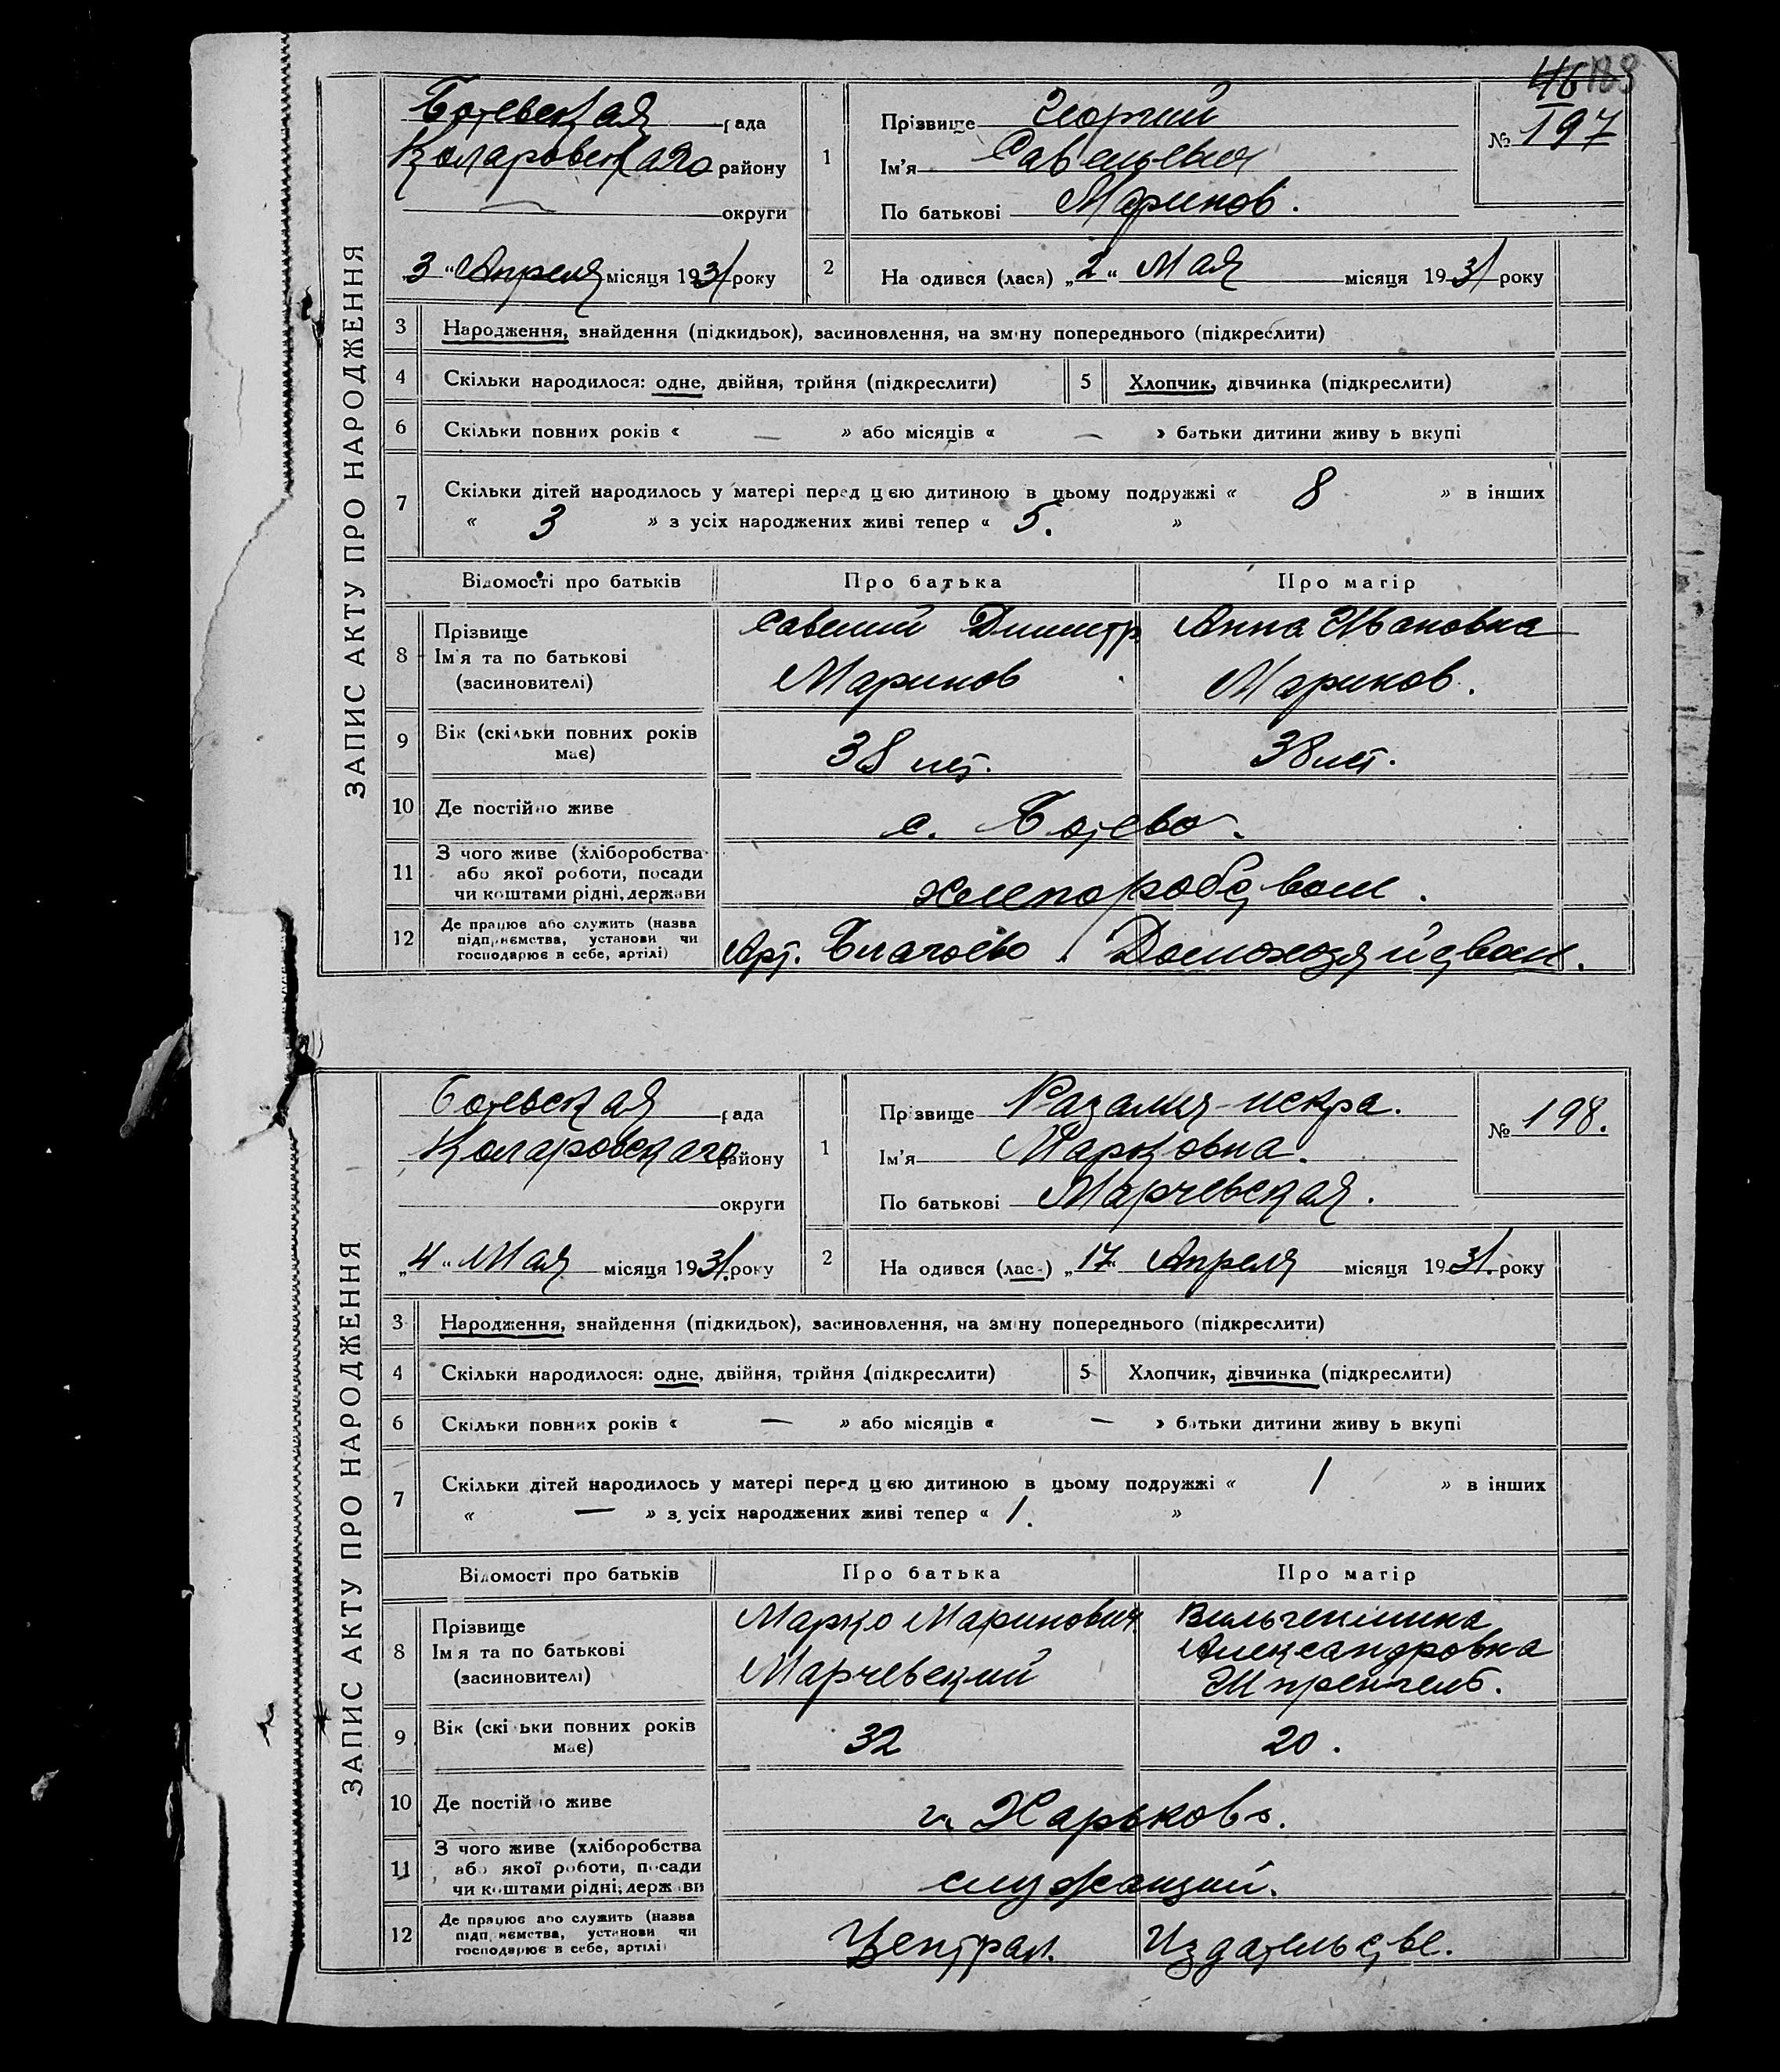 ЗАПИС АКТУ ПРО НАРОДЖЕННЯ
Ботевская рада
Коларовского району
округи
3 "Апреля місяця 1931 року
1
Прізвище Георгий
Ім'я Савельевич
По батькові Маринов.
46 188
№ 197
2
На одився (лася) „2" Мая місяця 1931 року
3 Народження, знайдення (підкидьок), засиновлення, на зміну попереднього (підкреслити)
4 Скільки народилося: одне, двійня, трійня (підкреслити) 5 Хлопчик, дівчинка (підкреслити)
6 Скільки повних років « — » або місяців « — » батьки дитини живу ь вкупі
7 Скільки дітей народилось у матері перед цією дитиною в цьому подружжі « 8 » в інших
« 3 » з усіх народжених живі тепер « 5. »
Відомості про батьків Про батька Про матір
8 Прізвище
Ім'я та по батькові
(засиновителі)
Савелий Димитр
Маринов
Анна Ивановна
Маринов.
9 Вік (скільки повних років
має)
38 лет. 38 лет.
10 Де постійно живе с. Ботево.
11 З чого живе (хліборобства
або якої роботи, посади
чи коштами рідні, держави
хлепоробством.
12 Де працює або служить (назва
підприємства, установи чи
господарює в себе, артілі)
Арт. Благоево. Домохозяйством.
ЗАПИС АКТУ ПРО НАРОДЖЕННЯ
Ботевская рада
Коларовского району
округи
„4" Мая місяця 1931. року
1
Прізвище Разалия-искра.
Ім'я Марковна.
По батькові Марчевская.
№ 198.
2
На одився (лас-) „17" Апреля місяця 1931. року
3 Народження, знайдення (підкидьок), засиновлення, на зміну попереднього (підкреслити)
4 Скільки народилося: одне, двійня, трійня (підкреслити) 5 Хлопчик, дівчинка (підкреслити)
6 Скільки повних років « — » або місяців « — » батьки дитини живу ь вкупі
7 Скільки дітей народилось у матері перед цією дитиною в цьому подружжі « 1 » в інших
« — » з усіх народжених живі тепер « 1. »
Відомості про батьків Про батька Про матір
8 Прізвище
Ім'я та по батькові
(засиновителі)
Марко Маринович
Марчевский
Вильгелмина
Александровна
Шпренгель.
9 Вік (скільки повних років
має)
32 20.
10 Де постійно живе г. Харьковъ.
11 З чого живе (хліборобства
або якої роботи, посади
чи коштами рідні, держави
служащий.
12 Де працює або служить (назва
підприємства, установи чи
господарює в себе, артілі)
Централ. Издательстве.